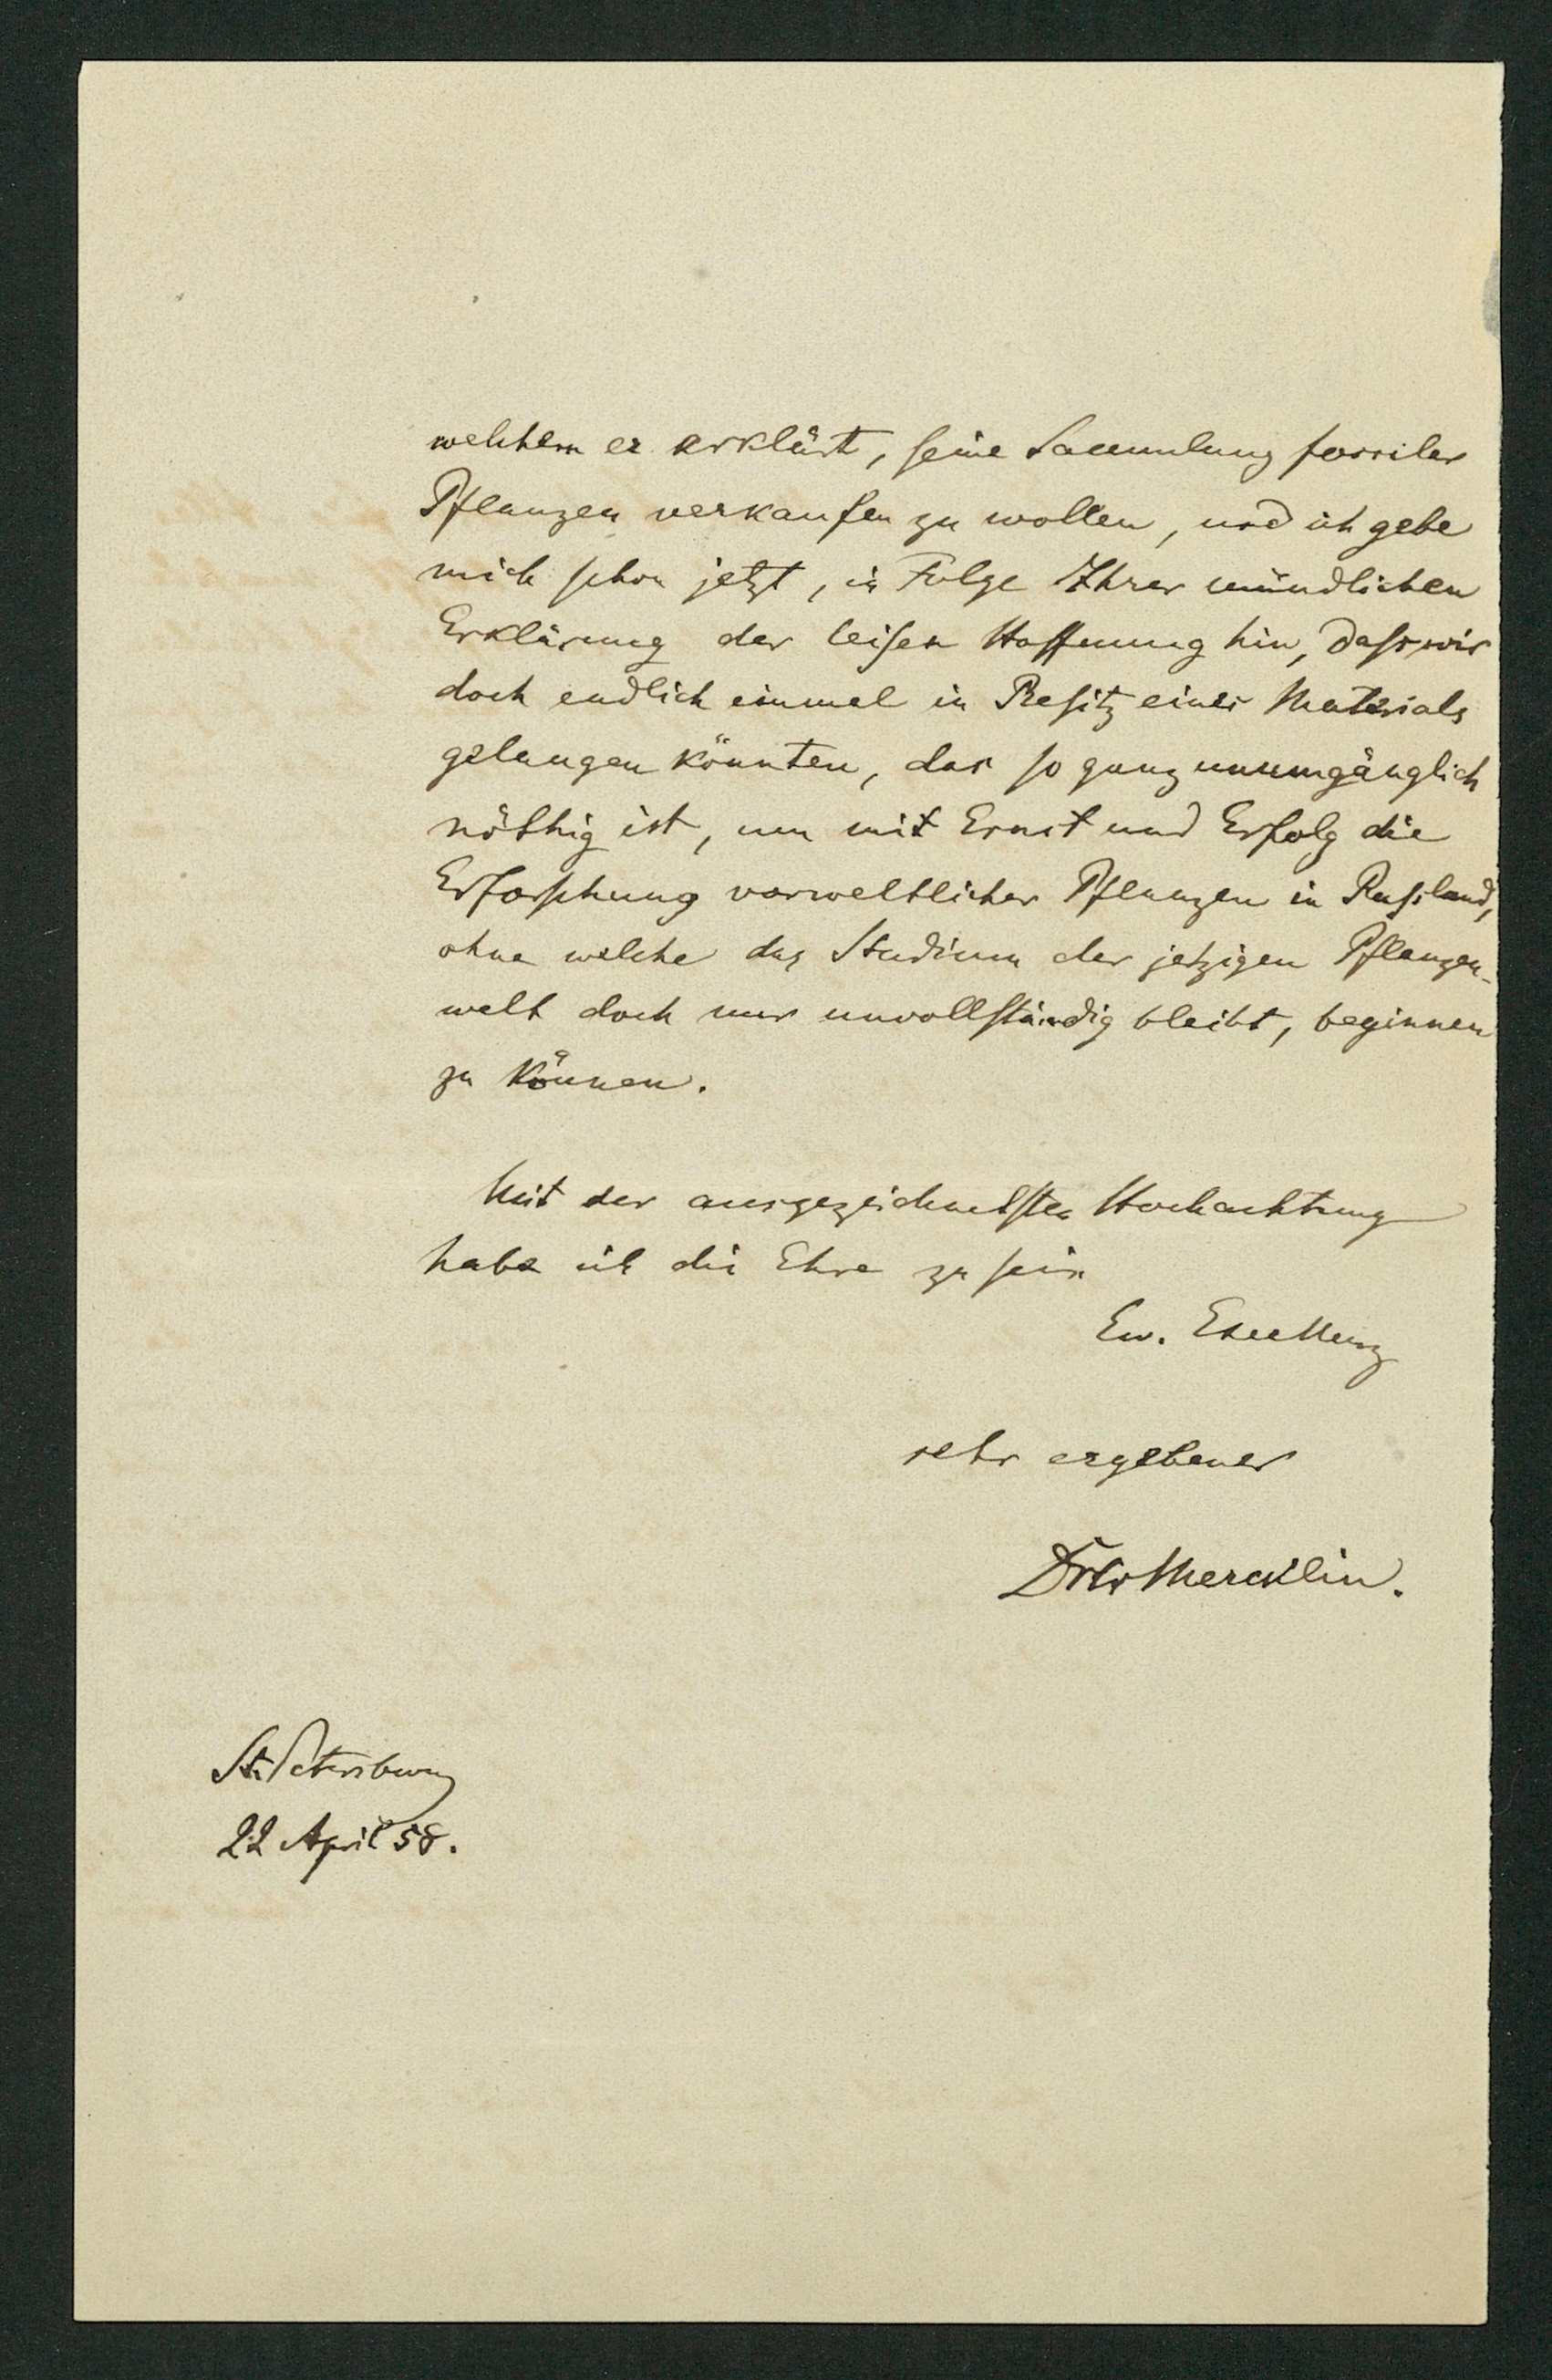 welchem er erklärt, seine Sammlung fossiler
Pflanzen verkaufen zu wollen, und ich gebe
mich schon jetzt, in Folge Ihrer mündlichen
Erklärung der leisen Hoffnung hin, dass wir
doch endlich einmal in Besitz eines Materials
gelangen könnten, das so ganz unumgänglich
nöthig ist, um mit Ernst und Erfolg die
Erforschung vorweltlicher Pflanzen in Russland,
ohne welche das Studium der jetzigen Pflanzen-
welt doch nur unvollständig bleibt, beginnen
zu können.
Mit der ausgezeichnetsten Hochachtung
habe ich die Ehre zu sein
Ew. Excellenz
sehr ergebener
Mercklin.
St. Petersburg
22 April 58.